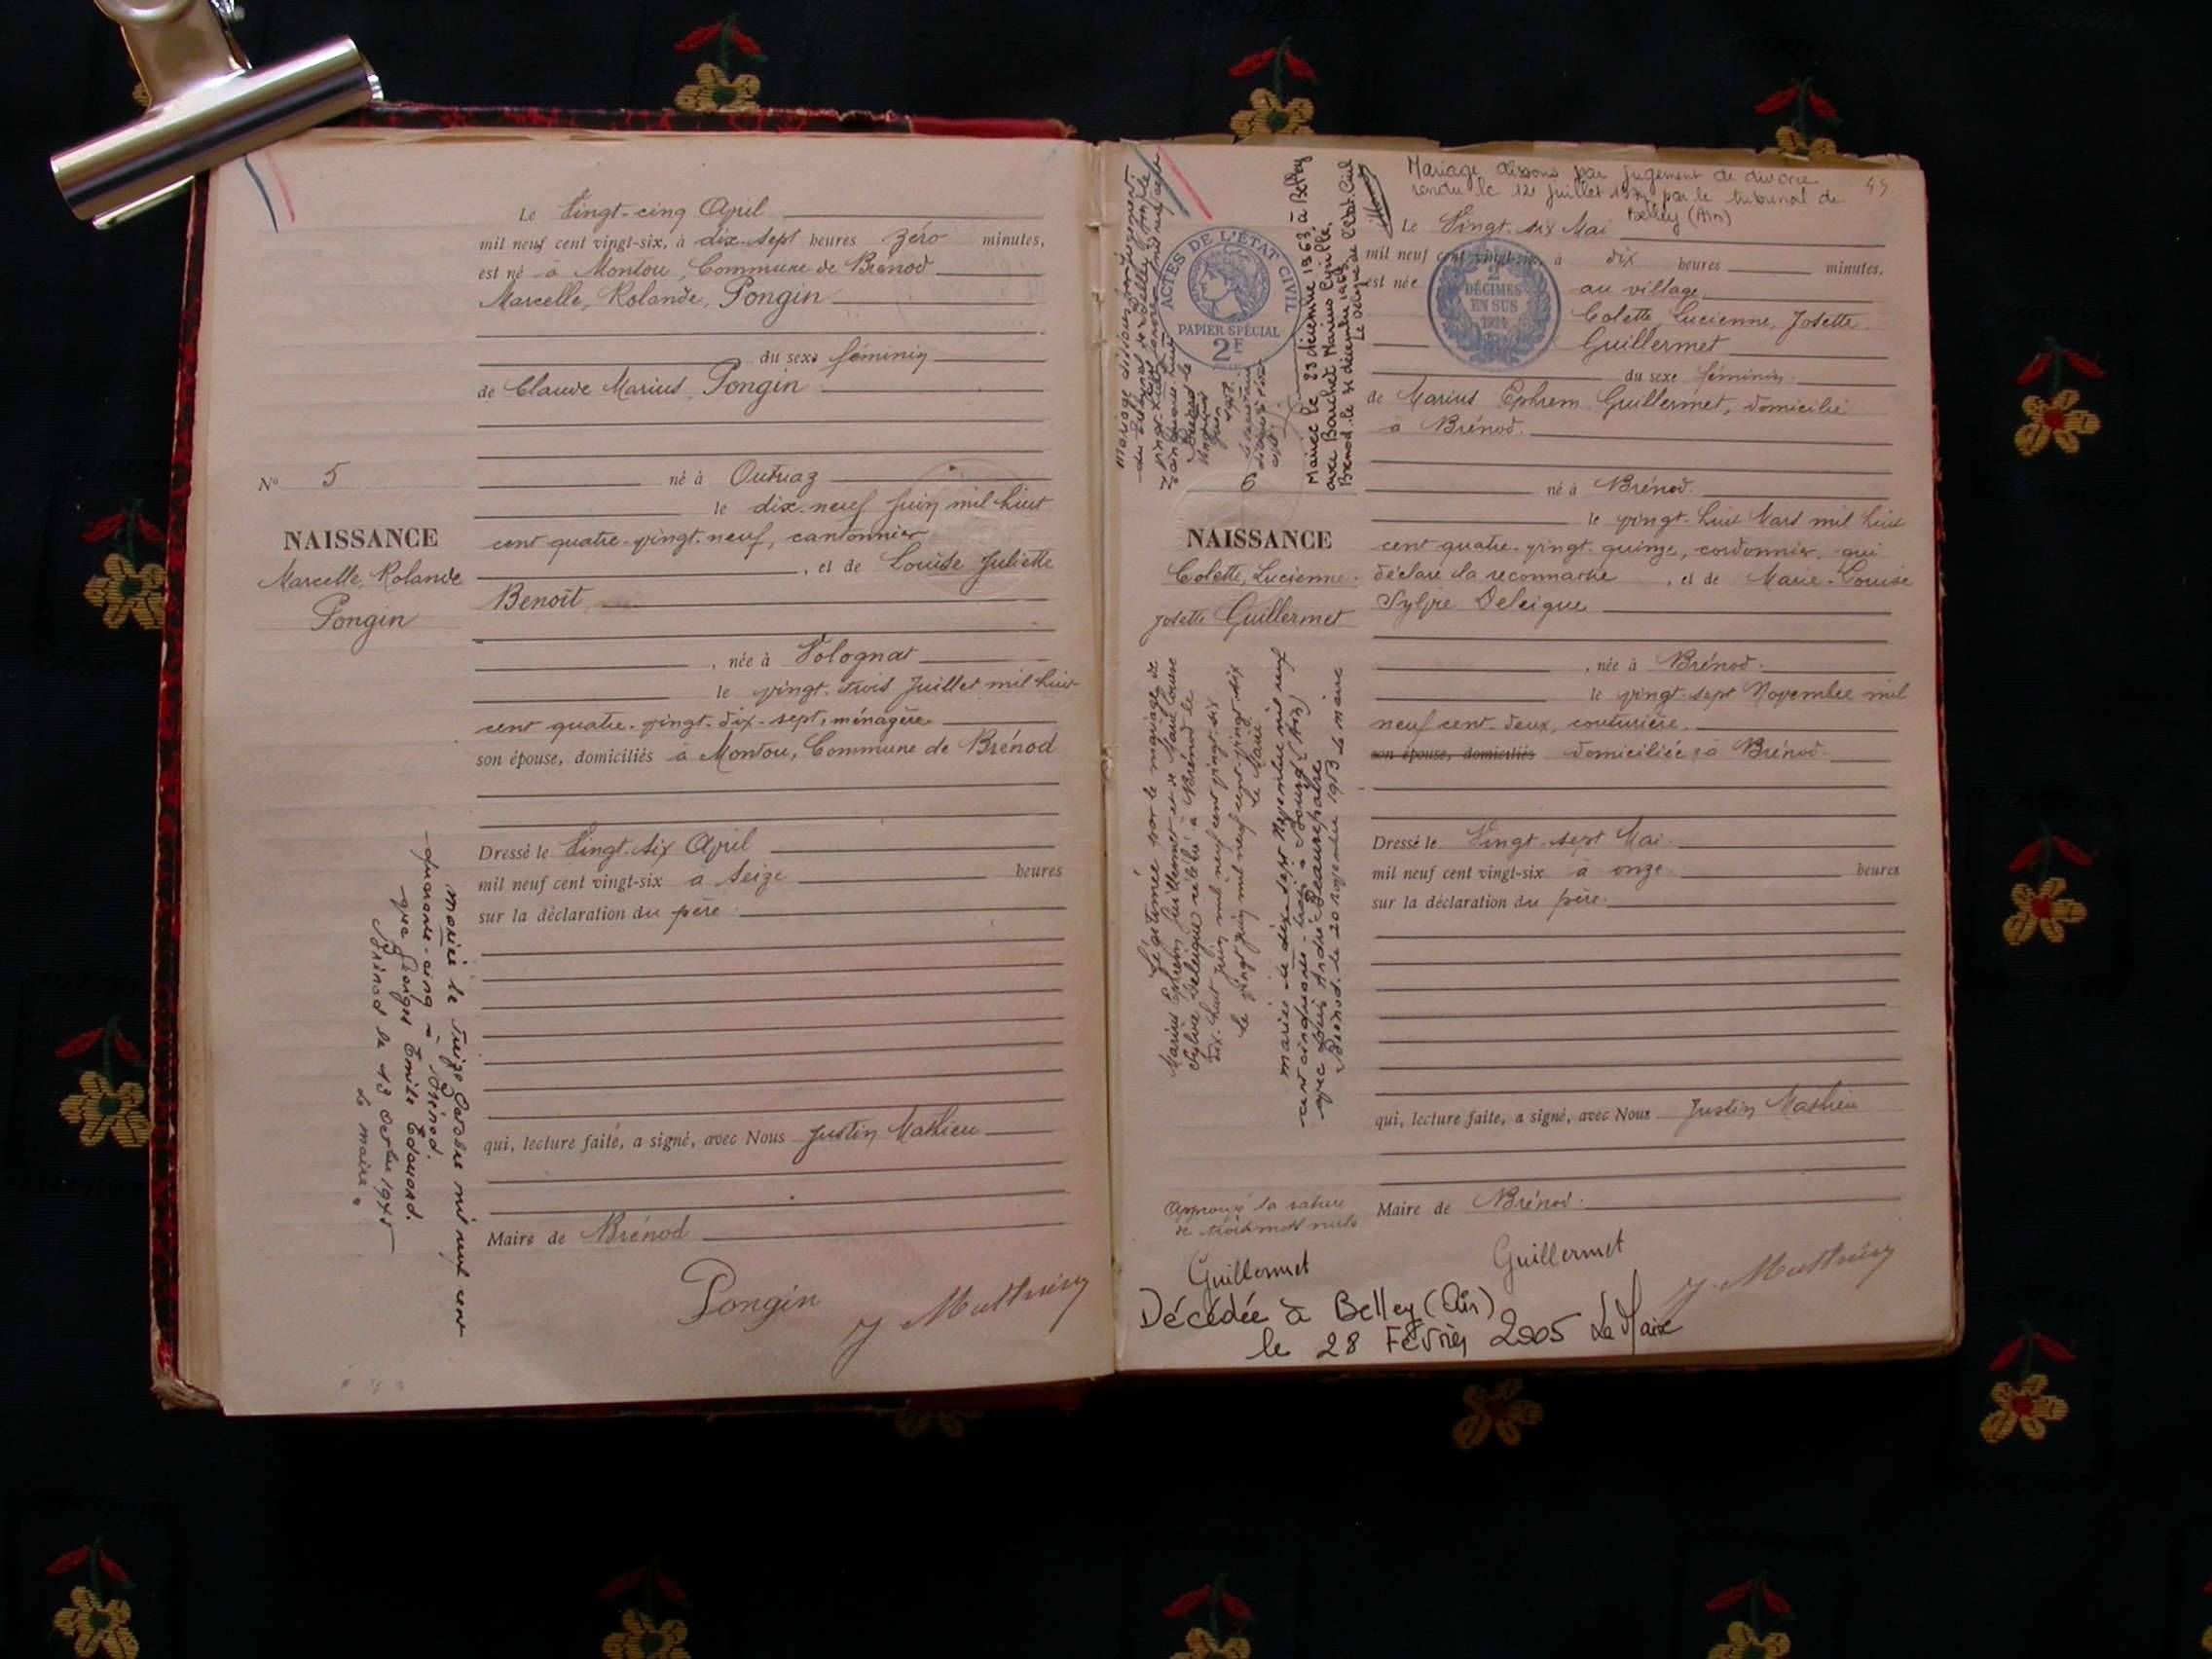 Le Vingt-cinq Avril
mil neuf cent vingt-six, à dix-sept heures zéro minutes,
est né à Montou, Commune de Brénod
Marcelle, Rolande, Pongin
du sexe féminin
de Claude Marius, Pongin
né à Outriaz
le dix-neuf Juin mil huit
cent quatre-vingt-neuf, cantonnier
, et de Louise Juliette
Benoît
, née à Volognat
le vingt-trois Juillet mil huit
cent quatre-vingt-dix-sept, ménagère
son épouse, domiciliés à Montou, Commune de Brénod
Dressé le Vingt-six Avril
mil neuf cent vingt-six à seize heures
sur la déclaration du père
qui, lecture faite, a signé, avec Nous Justin Mathieu
Maire de Brénod
Pongin
J Mathieu
No 5
NAISSANCE
Marcelle, Rolande
Pongin
mariée le treize Octobre mil neuf cent
quarante-cinq à Brénod
avec Georges Emile Edouard.
Brénod le 13 Octobre 1945
Le maire.
Mariage dissous par jugement de divorce
rendu le 12 juillet par le tribunal de
Belley (Ain)
Le Vingt-six Mai
mil neuf cent vingt-six, à dix heures minutes,
est née au village
Colette, Lucienne, Josette
Guillermet
du sexe féminin
de Marius Ephrem Guillermet, domicilié
à Brénod.
né à Brénod.
le vingt-huit Mars mil huit
cent quatre-vingt-quinze, cordonnier, qui
déclare la reconnaître , et de Marie-Louise
Sylvie Deleigue
, née à Brénod.
le vingt-sept Novembre mil
neuf cent-deux, couturière.
son épouse, domiciliés domiciliée à Brénod.
Dressé le Vingt-sept Mai
mil neuf cent vingt-six à onze heures
sur la déclaration du père.
qui, lecture faite, a signé, avec Nous Justin Mathieu
Maire de Brénod.
Guillermet
J Mathieu
ACTES DE L'ÉTAT CIVIL
PAPIER SPÉCIAL
2F
2
DÉCIMES
EN SUS
1924
mariage dissous par jugement
du tribunal de Belley
Mariée le 23 décembre 1963 à Belley
avec Marius Cyrille.
Brénod le 31 décembre 1963
Le délégué de l'Etat-Civil
6
NAISSANCE
Colette, Lucienne
Josette Guillermet
Légitimée par le mariage de
Marius Ephrem Guillermet et de Marie Louise
Sylvie Deleigue célébré à Brénod le
dix-huit juin mil neuf cent vingt-six
Le vingt juin mil neuf cent vingt-six
Le Maire
mariée le dix-sept Novembre mil neuf
cent cinquante-trois à Bourg (Ain)
avec Louis André Beaurepaire
Brénod le 20 novembre 1953 Le maire
Approuvé la rature
de trois mots nuls
Guillermet
Décédée à Belley (Ain)
le 28 Février 2005 Le Maire